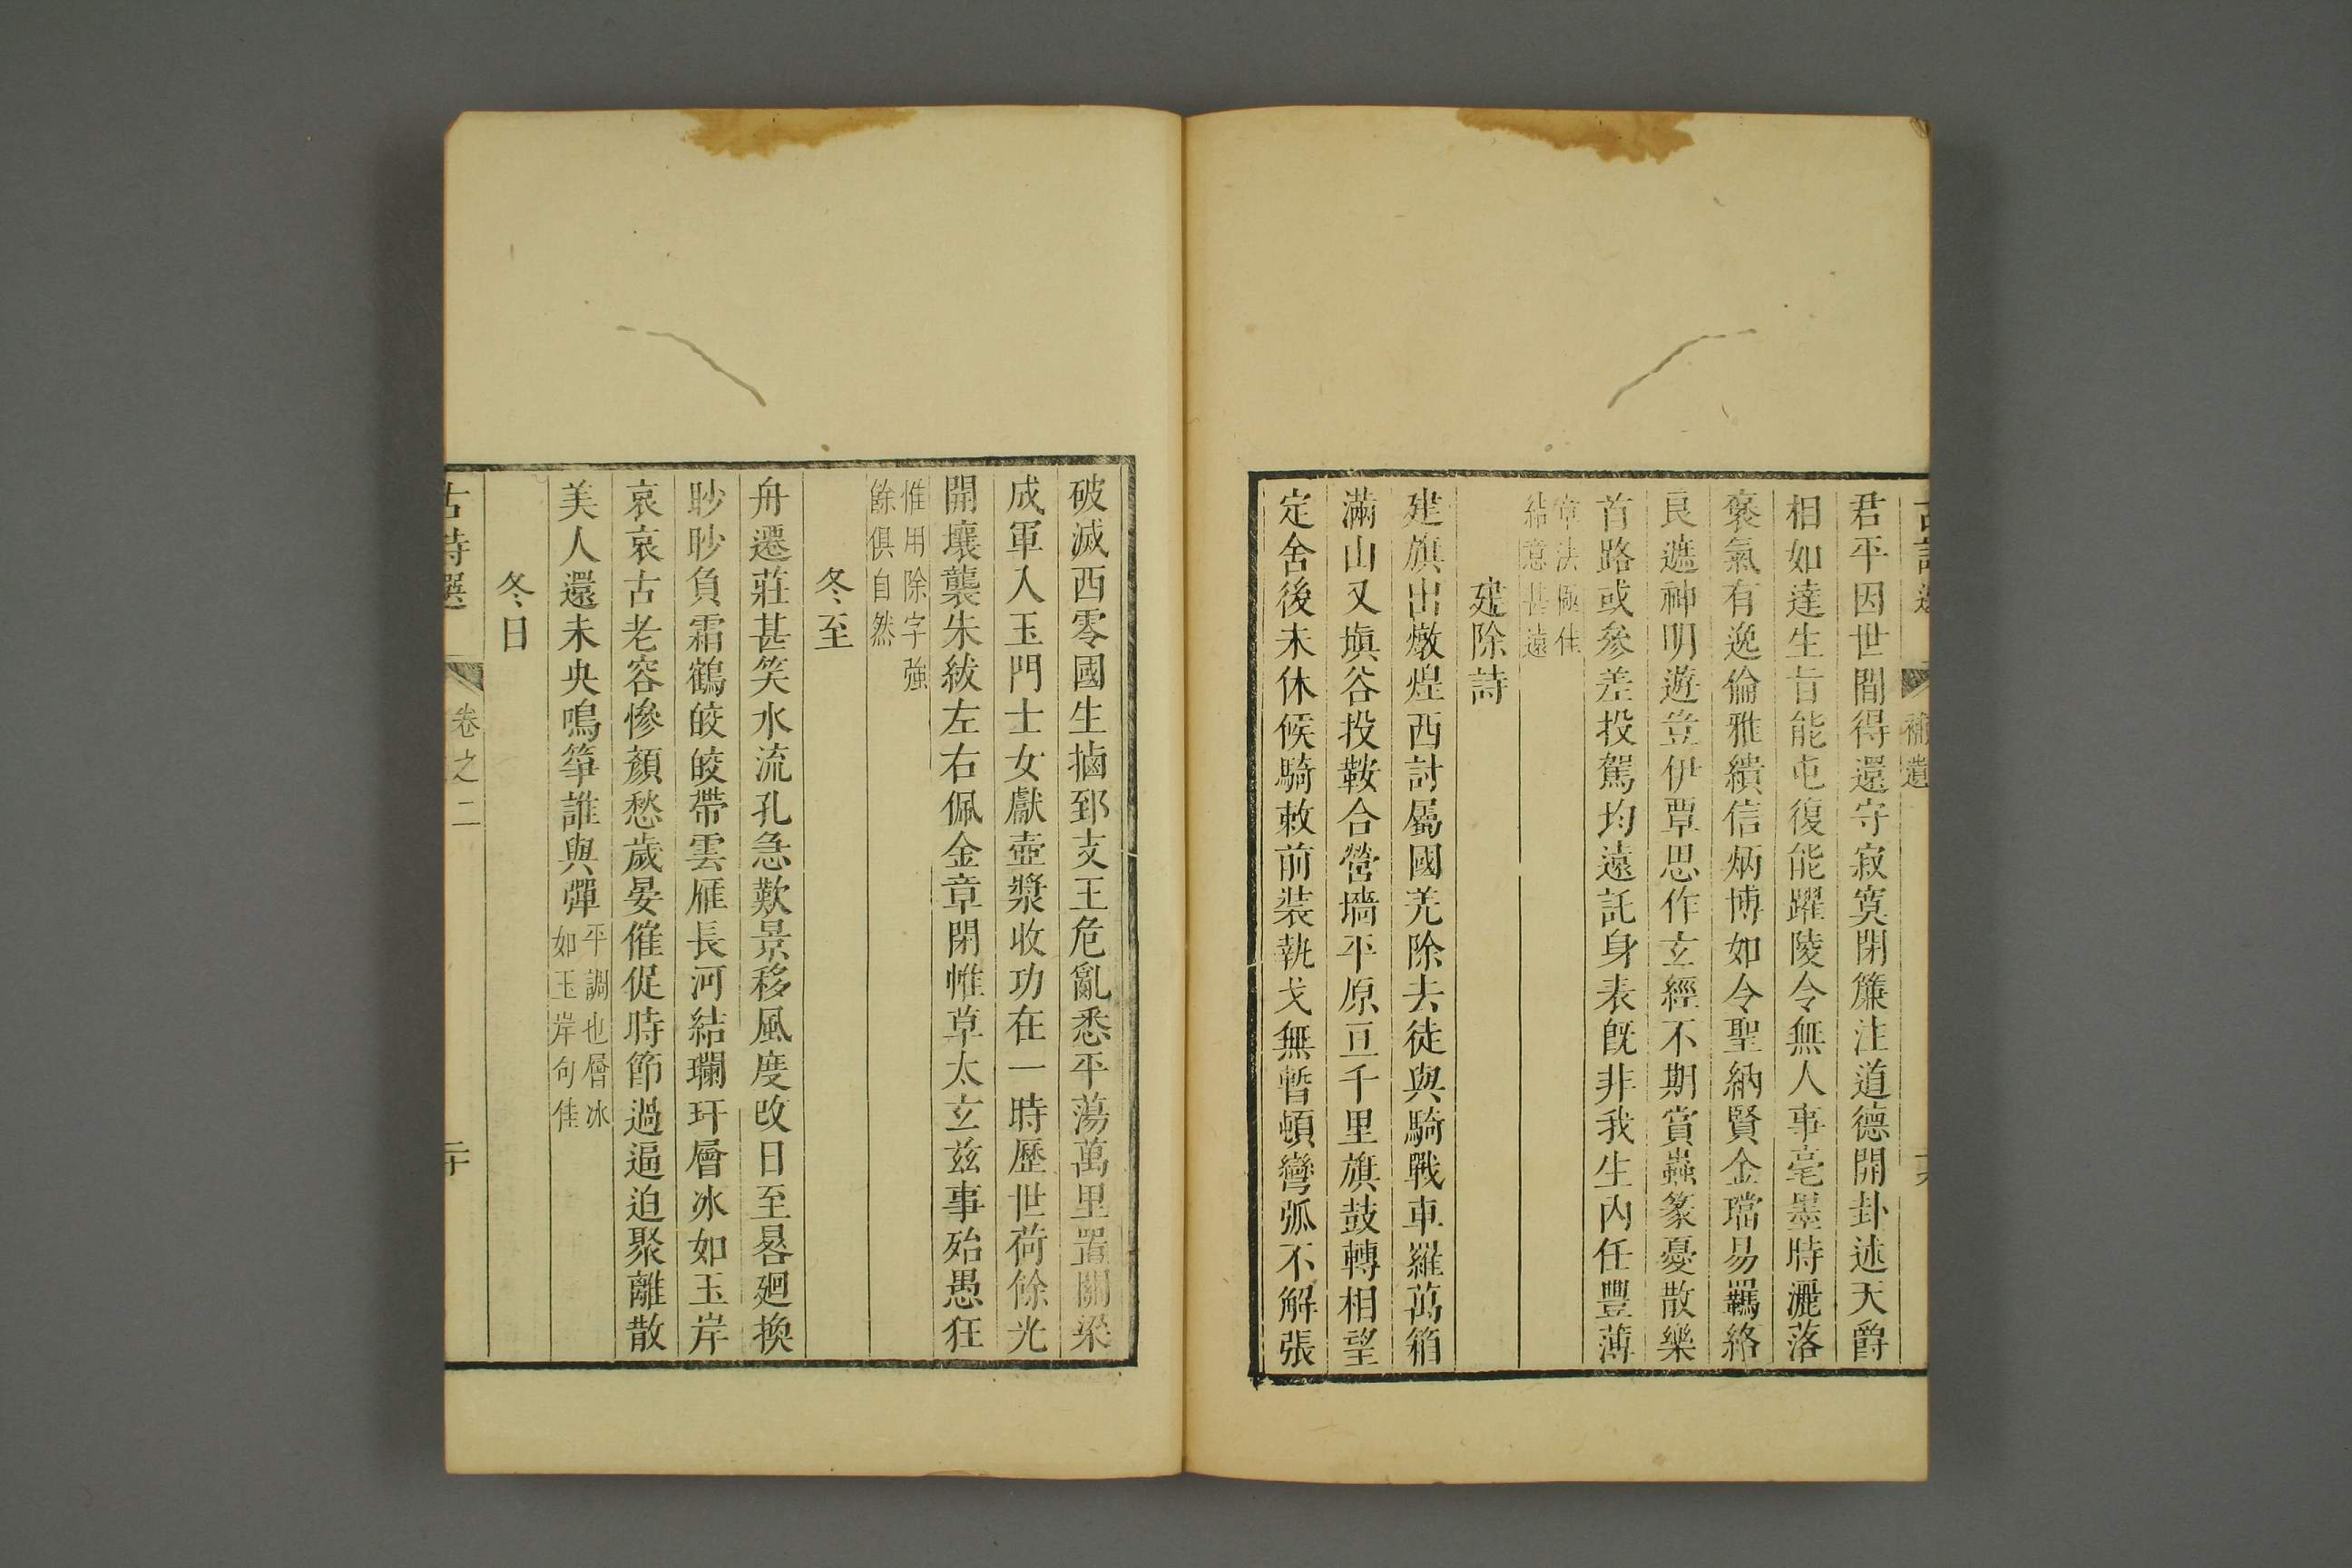 補遺
君平因世間得還守寂寞閉簾注道德開卦述天爵
相如達生旨能屯復能躍陵令無人事毫墨時灑落
褒氣有逸倫雅繢信炳博如令聖納賢金璫易羈絡
良遮神明遊豈伊覃思作玄經不期賞蟲篆憂散樂
首路或參差投駕均遠託身表旣非我生內任豐薄
章法極佳
結意甚遠
建除詩
建旗出燉煌西討屬國羌除去徒與騎戰車羅萬箱
滿山又塡谷投鞍合營墻平原亘千里旗鼓轉相望
定舍後未休候騎敕前裝執戈無暫頓彎弧不解張
破滅西零國生擒郅支王危亂悉平蕩萬里置關梁
成軍入玉門士女獻壺漿收功在一時歷世荷餘光
開壤襲朱紱左右佩金章閉帷草太玄茲事殆愚狂
惟用除字強
餘俱自然
冬至
舟遷莊甚笑水流孔急歎景移風度改日至晷廻換
眇眇負霜鶴皎皎帶雲雁長河結瓓玕層冰如玉岸
哀哀古老容慘顏愁歲晏催促時節過逼迫聚離散
美人還未央鳴箏誰與彈
平調也層冰
如玉岸句佳
冬日
古詩選
卷之二
二十